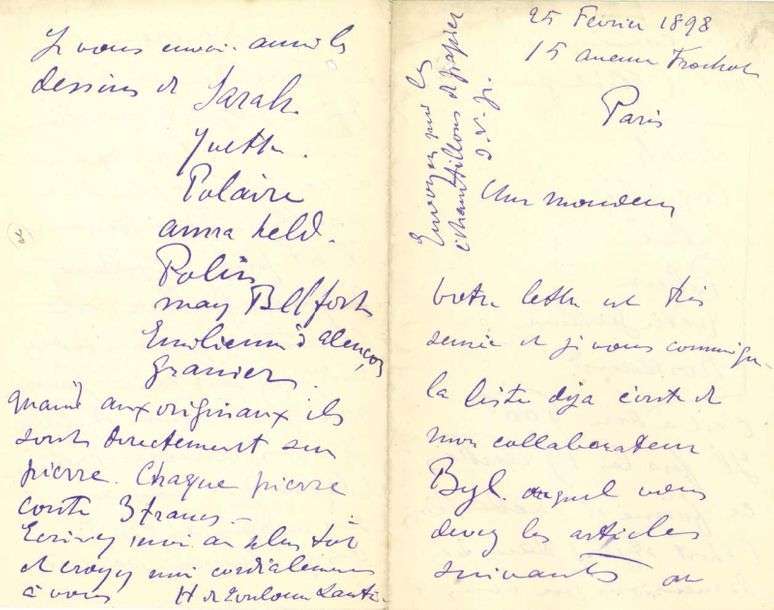 25 Février 1898
15 avenue Frochot
Paris
Envoyez moi les
échantillons de papier
S.V.P.
Cher Monsieur
votre lettre est très
sensée et je vous communique
la liste déja écrite de
mon collaborateur
Byl. auquel vous
devez les articles
suivants
Je vous envoie aussi les
dessins de Sarah.
Yvette.
Polaire
anna held.
Polin
may Belfort
Emilienne d'alençon
Granier.
Quand aux originaux ils
sont directement sur
pierre. Chaque pierre
coute 3 francs.-
Ecrivez moi au plus tôt
et croyez moi cordialement
à vous H de Toulouse Lautrec